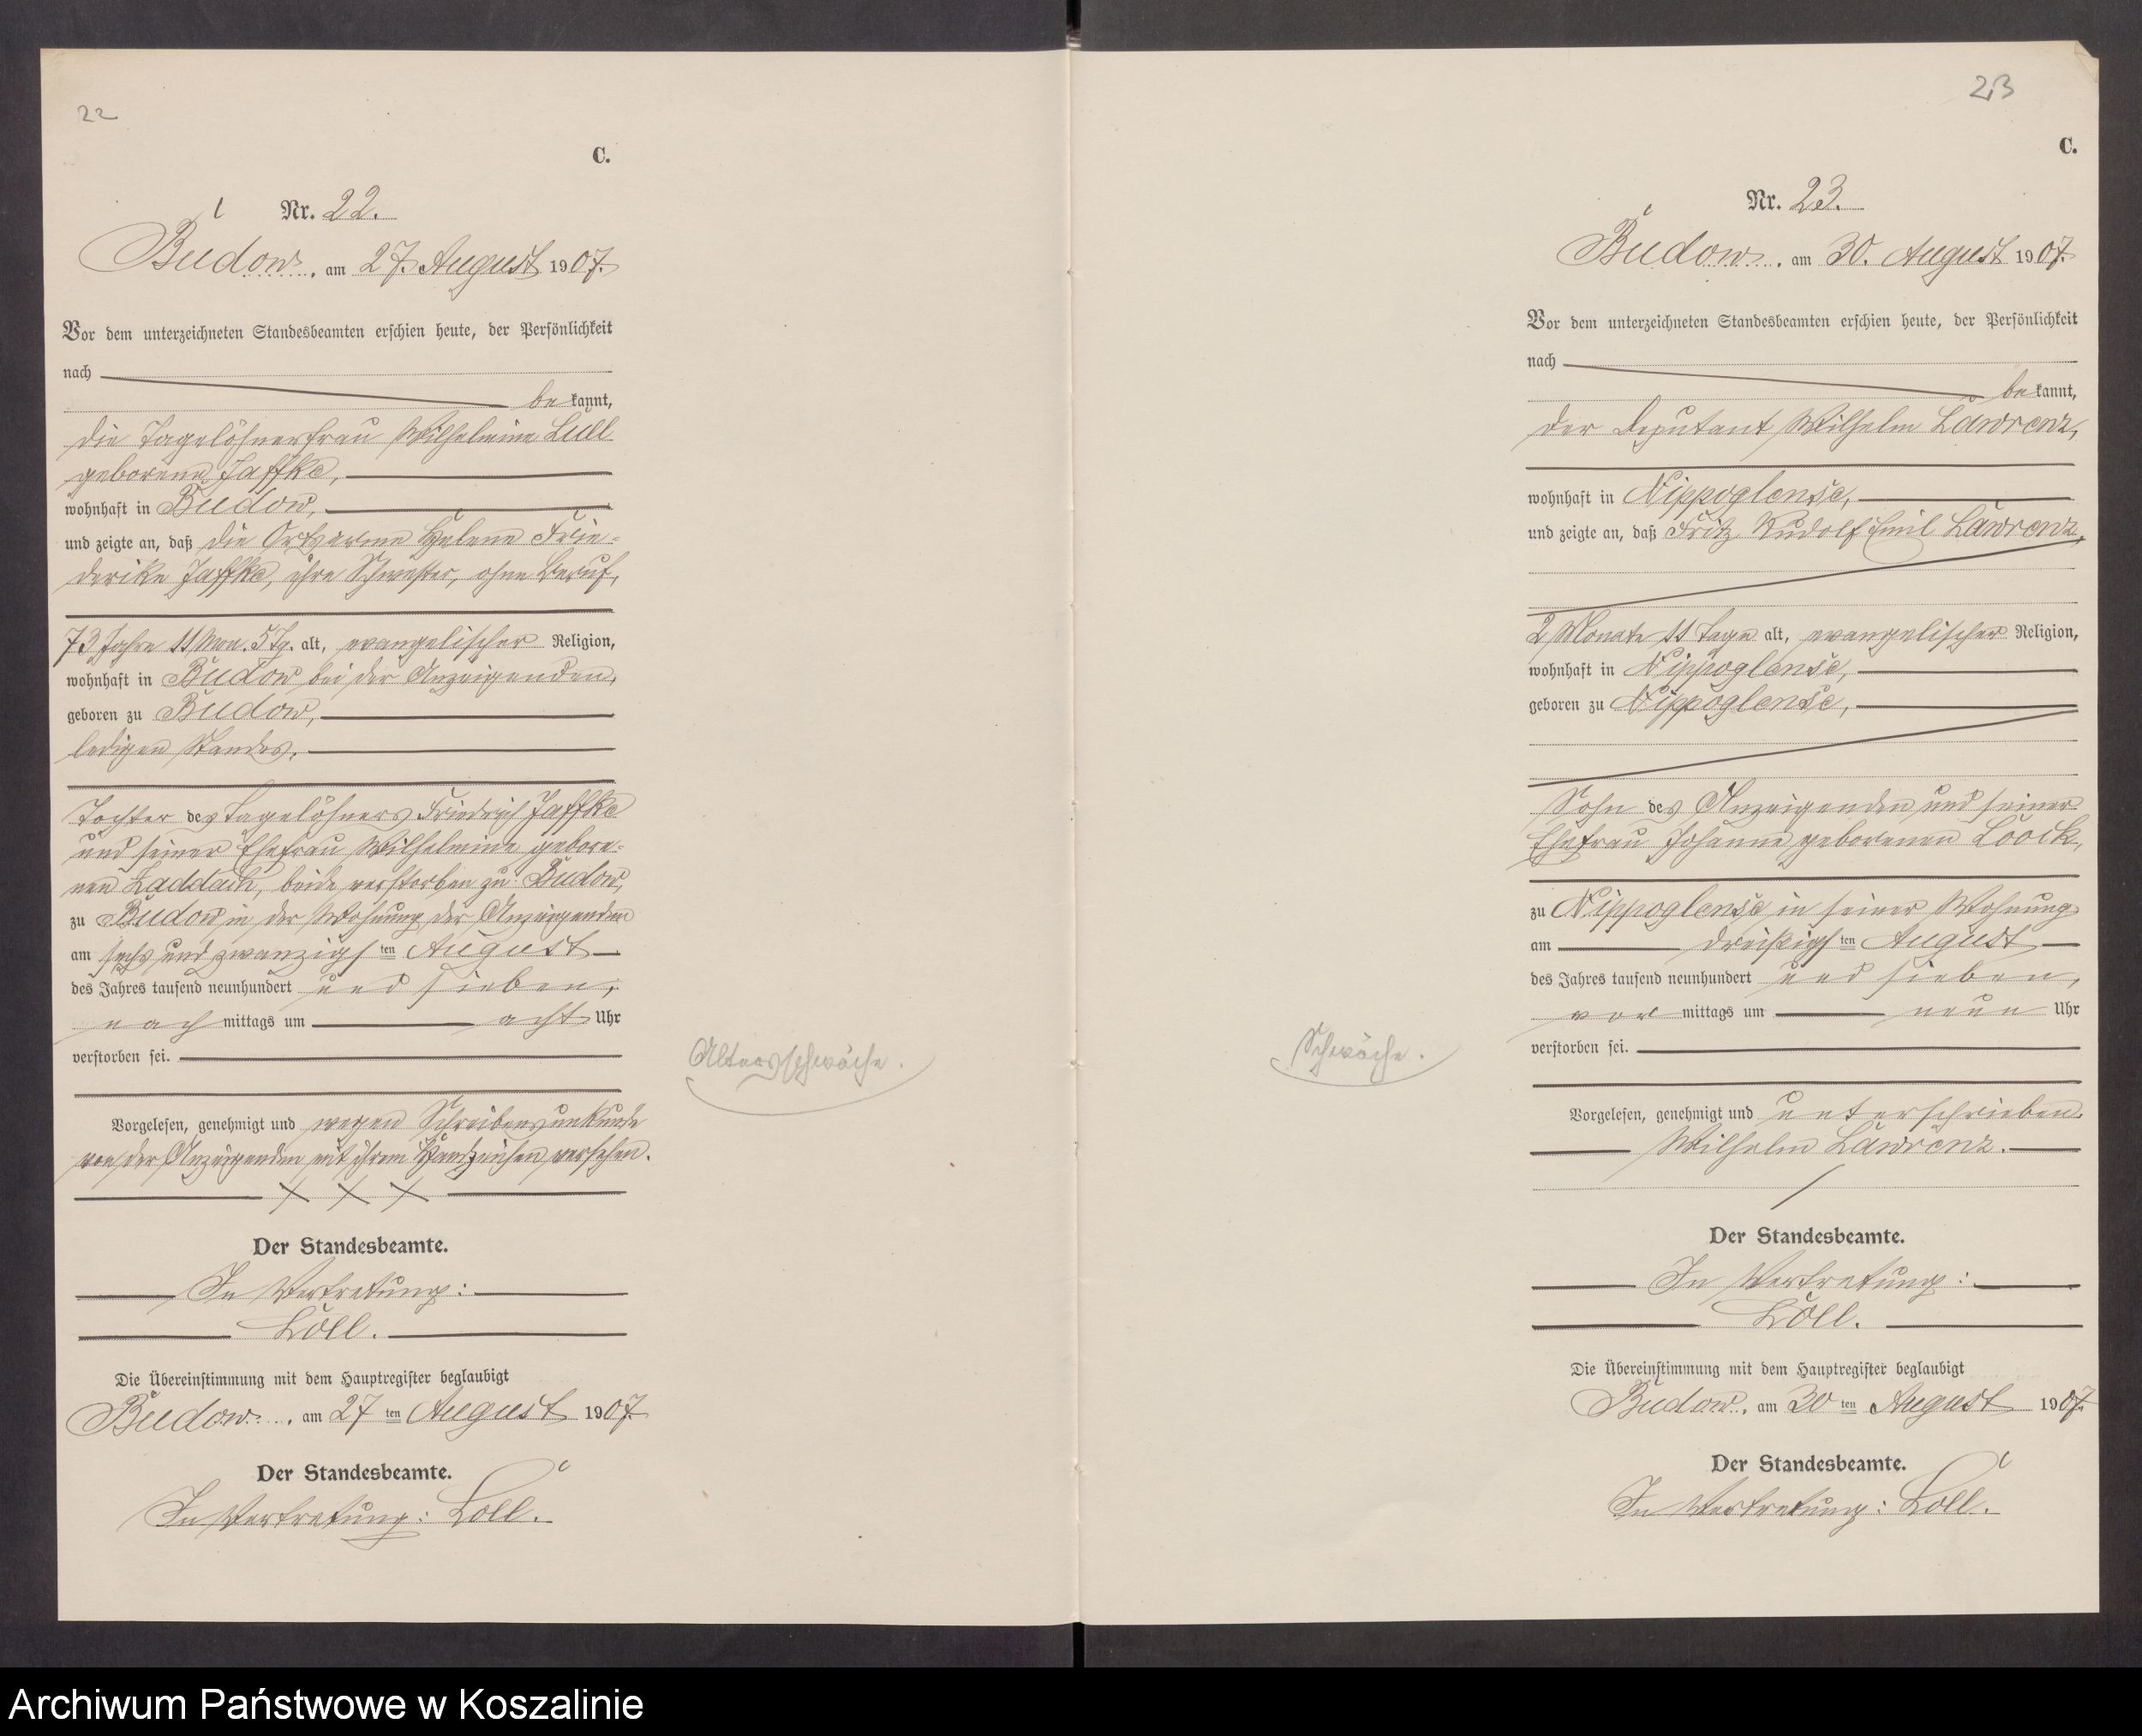 22
C.
Nr. 22.
Budow, am 27. August 1907.
Vor dem unterzeichneten Standesbeamten erschien heute, der Persönlichkeit
nach
bekannt,
die Tagelöhnerfrau Wilhelmine Lull
geborene Jaffke,
wohnhaft in Budow,
und zeigte an, daß die Ortsarme Helene Frie-
derike Jaffke, ihre Schwester, ohne Beruf,
73 Jahre 11 Mon. 5 Tg. alt, evangelischer Religion,
wohnhaft in Budow bei der Anzeigenden,
geboren zu Budow,
ledigen Standes,
Tochter des Tagelöhners Friedrich Jaffke
und seiner Ehefrau Wilhelmine gebore-
nen Laddach, beide verstorben zu Budow,
zu Budow in der Wohnung der Anzeigenden
am sechs und zwanzigsten August
des Jahres tausend neunhundert und sieben,
nachmittags um acht Uhr
verstorben sei.
Altersschwäche.
Vorgelesen, genehmigt und wegen Schreibensunkunde
von der Anzeigenden mit ihrem Handzeichen versehen.
X X X
Der Standesbeamte.
In Vertretung:
Löll.
Die Übereinstimmung mit dem Hauptregister beglaubigt
Budow, am 27ten August 1907.
Der Standesbeamte.
In Vertretung: Löll.
23
C.
Nr. 23.
Budow, am 30. August 1907.
Vor dem unterzeichneten Standesbeamten erschien heute, der Persönlichkeit
nach
bekannt,
der Deputant Wilhelm Lawrenz,
wohnhaft in Nippoglense,
und zeigte an, daß Fritz Rudolf Emil Lawrenz,
2 Monate 11 Tage alt, evangelischer Religion,
wohnhaft in Nippoglense,
geboren zu Nippoglense,
Sohn des Anzeigenden und seiner
Ehefrau Johanne geborenen Loock,
zu Nippoglense in seiner Wohnung
am dreißigsten August
des Jahres tausend neunhundert und sieben,
vormittags um neun Uhr
verstorben sei.
Schwäche.
Vorgelesen, genehmigt und unterschrieben.
Wilhelm Lawrenz.
Der Standesbeamte.
In Vertretung:
Löll.
Die Übereinstimmung mit dem Hauptregister beglaubigt
Budow, am 30ten August 1907.
Der Standesbeamte.
In Vertretung: Löll.
Archiwum Państwowe w Koszalinie